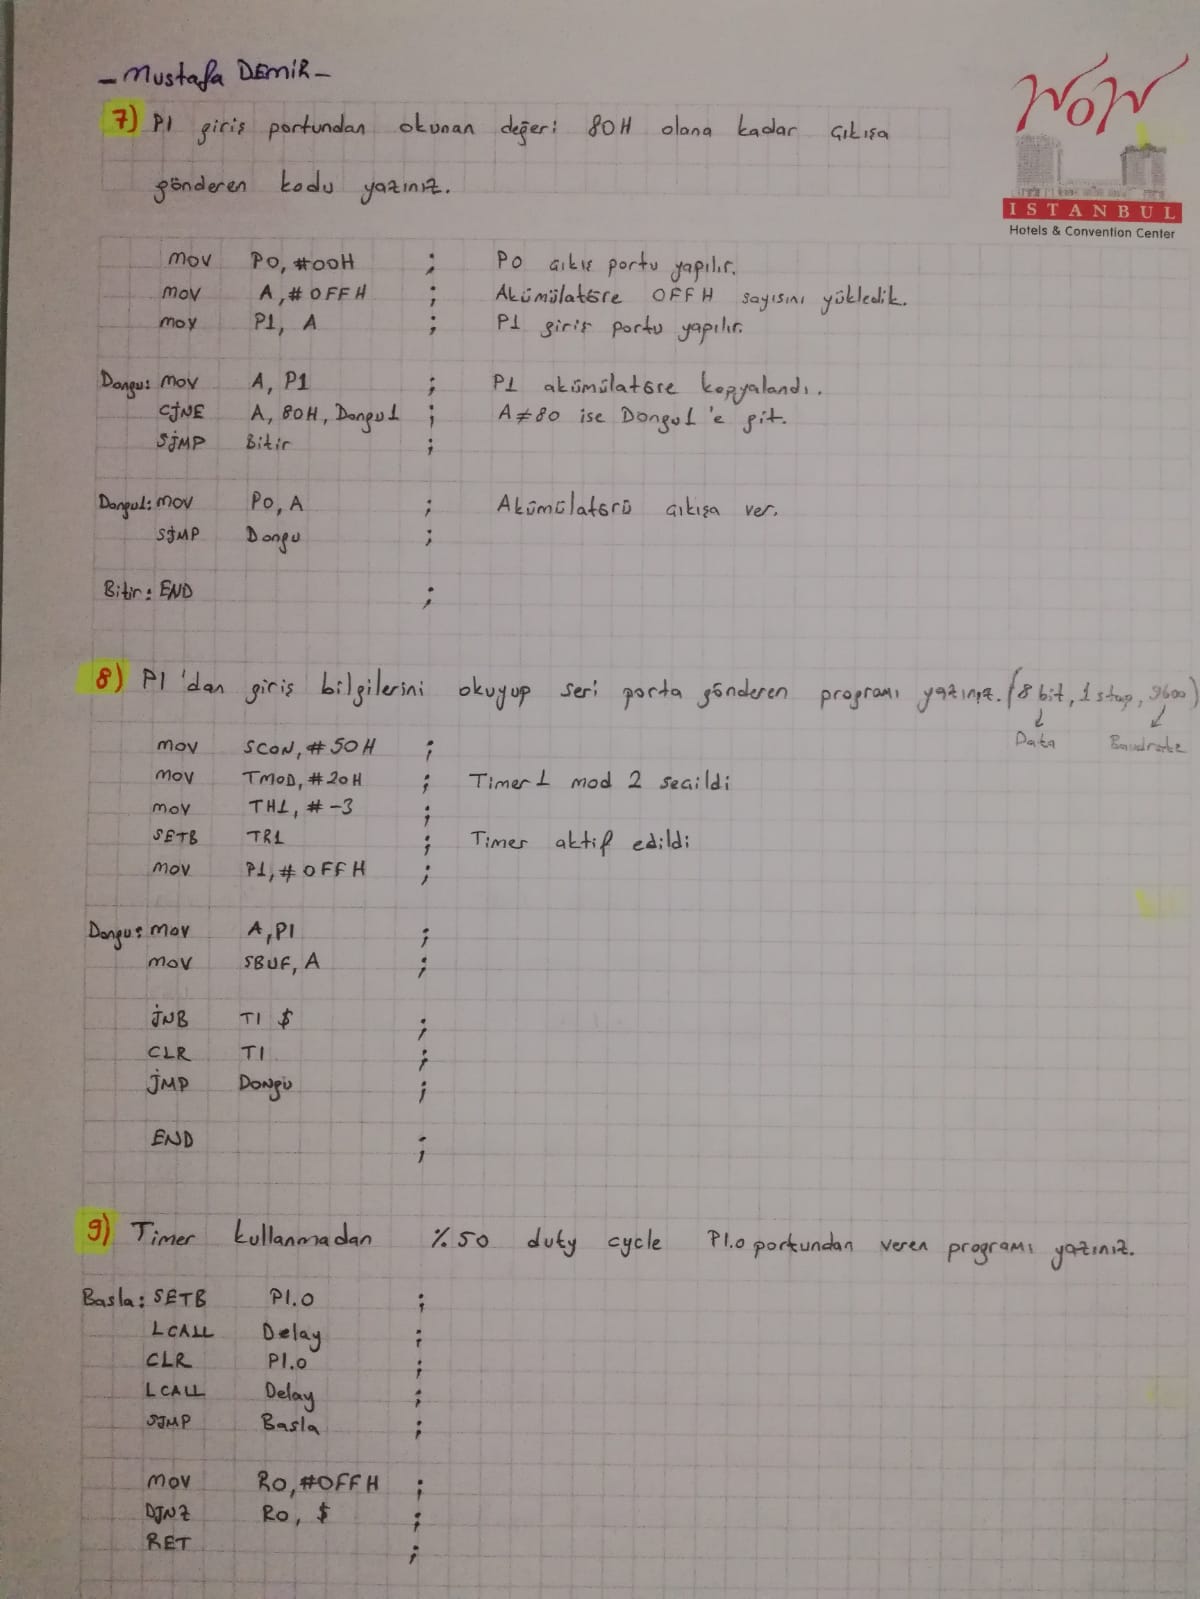 - Mustafa DEMİR -
WOW
ISTANBUL
Hotels & Convention Center
7) P1 giriş portundan okunan değeri 80H olana kadar çıkışa
gönderen kodu yazınız.
mov P0, #00H ; P0 çıkış portu yapılır.
mov A, #0FFH ; Akümülatöre 0FFH sayısını yükledik.
mov P1, A ; P1 giriş portu yapılır.
Dongu: mov A, P1 ; P1 akümülatöre kopyalandı.
CJNE A, 80H, Dongu1 ; A≠80 ise Dongu1'e git.
SJMP Bitir ;
Dongu1: mov P0, A ; Akümülatörü çıkışa ver.
SJMP Dongu ;
Bitir: END ;
8) P1'dan giriş bilgilerini okuyup seri porta gönderen programı yazınız. (8 bit, 1 stop, 9600)
Data Baudrate
mov SCON, #50H ;
mov TMOD, #20H ; Timer1 mod 2 seçildi
mov TH1, #-3 ;
SETB TR1 ; Timer aktif edildi
mov P1, #0FFH ;
Dongu: mov A, P1 ;
mov SBUF, A ;
JNB TI $ ;
CLR TI ;
JMP Dongü ;
END ;
9) Timer kullanmadan %50 duty cycle P1.0 portundan veren programı yazınız.
Basla: SETB P1.0 ;
LCALL Delay ;
CLR P1.0 ;
LCALL Delay ;
SJMP Basla ;
mov R0, #0FFH ;
DJNZ R0, $ ;
RET ;